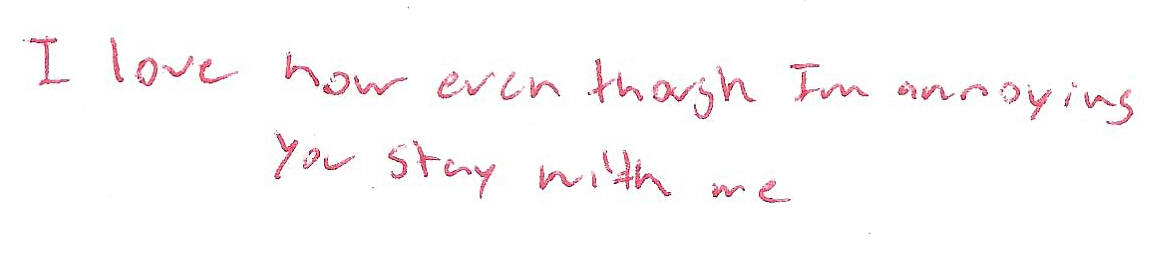 I love how even though Im annoying
you stay with me